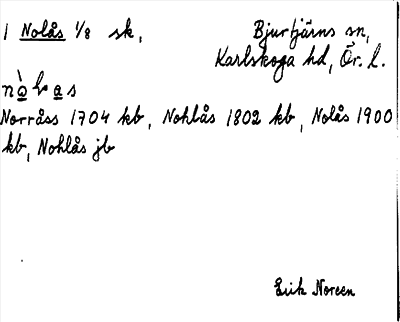 1 Nolås 1/8 sk, Bjurtjärns sn,
Karlskoga hd, Ör. l.
Norråss 1704 kb, Nohlås 1802 kb, Nolås 1900
kb, Nohlås jb
Erik Noreen